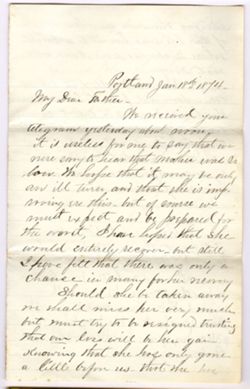 Portland Jan 18th 1874.
My Dear Father.
We received your
telegram yesterday about
It is useless for me to say that we
were sorry to hear that Mother was so
low. We hope that it may be only
an ill turn, and that she is imp
roving ere this. but of course we
must expect and be prepared for
the worst, I have hoped that she
would entirely recover but still
I have felt that there was only a
chance in many for her
Should she be taken away
we shall miss her very much
but must try to be resigned trusting
that our loss will be her gain
Knowing that she has only gone
a little before us. that she has